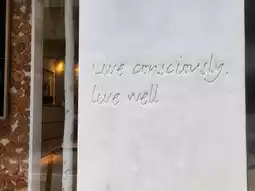 Live consciously.
live well